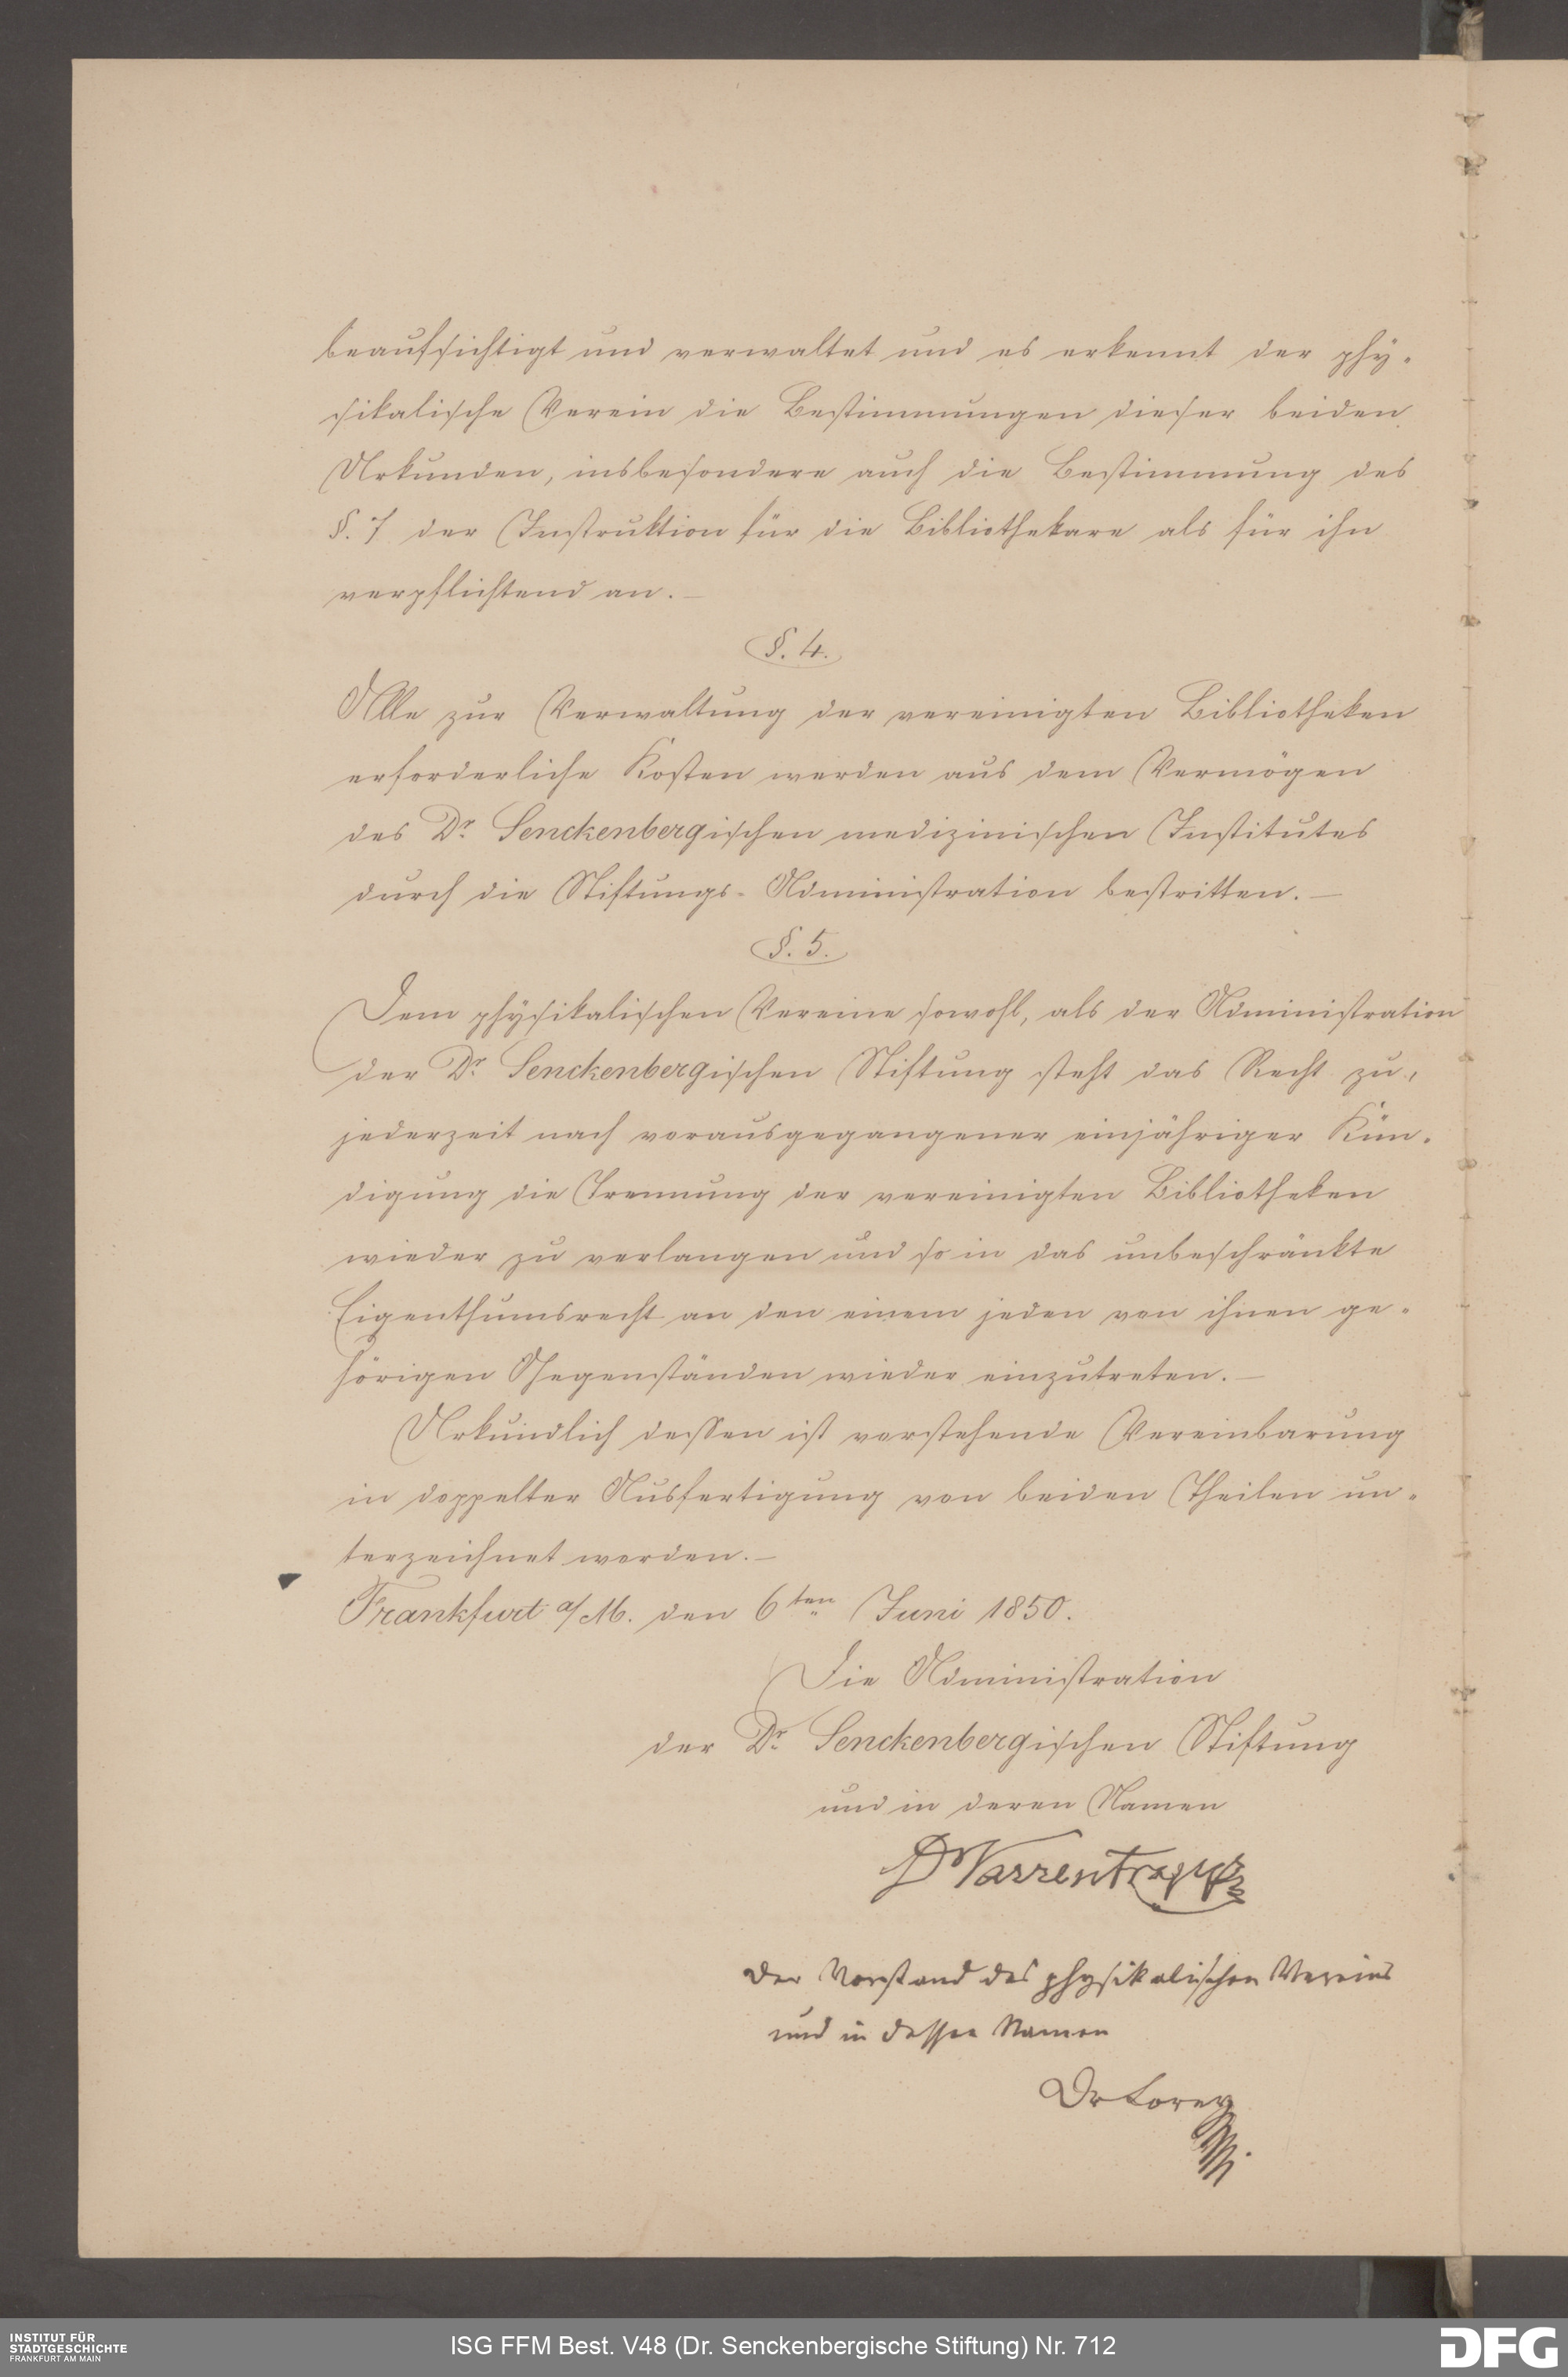 beaufsichtigt und verwaltet und es erkennt der phy-
sikalische Verein die Bestimmungen dieser beiden
Urkunden, insbesondere auch die Bestimmung des
§. 7 der Instruktion für die Bibliothekare als für ihn
verpflichtend an. —
§. 4.
Alle zur Verwaltung der vereinigten Bibliotheken
erforderliche Kosten werden aus dem Vermögen
des Dr. Senckenbergischen medizinischen Institutes
durch die Stiftungs-Administration bestritten. —
§. 5.
Dem physikalischen Vereine sowohl, als der Administration
der Dr. Senckenbergischen Stiftung steht das Recht zu,
jederzeit nach vorausgegangener einjähriger Kün-
digung die Trennung der vereinigten Bibliotheken
wieder zu verlangen und so in das unbeschränkte
Eigenthumsrecht an den einem jeden von ihnen ge-
hörigen Gegenständen wieder einzutreten. —
Urkundlich dessen ist vorstehende Vereinbarung
in doppelter Ausfertigung von beiden Theilen un-
terzeichnet worden. —
Frankfurt a/M. den 6ten Juni 1850.
Die Administration
der Dr. Senckenbergischen Stiftung
und in deren Namen
Dr Varrentrapp
Der Vorstand des physikalischen Vereins
und in dessen Namen
Dr Lorey
INSTITUT FÜR
STADTGESCHICHTE
FRANKFURT AM MAIN
ISG FFM Best. V48 (Dr. Senckenbergische Stiftung) Nr. 712
DFG